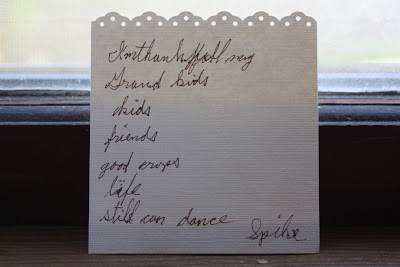 I'm thankffull my
Grand kids
kids
friends
good crops
life
still can dance
Spike